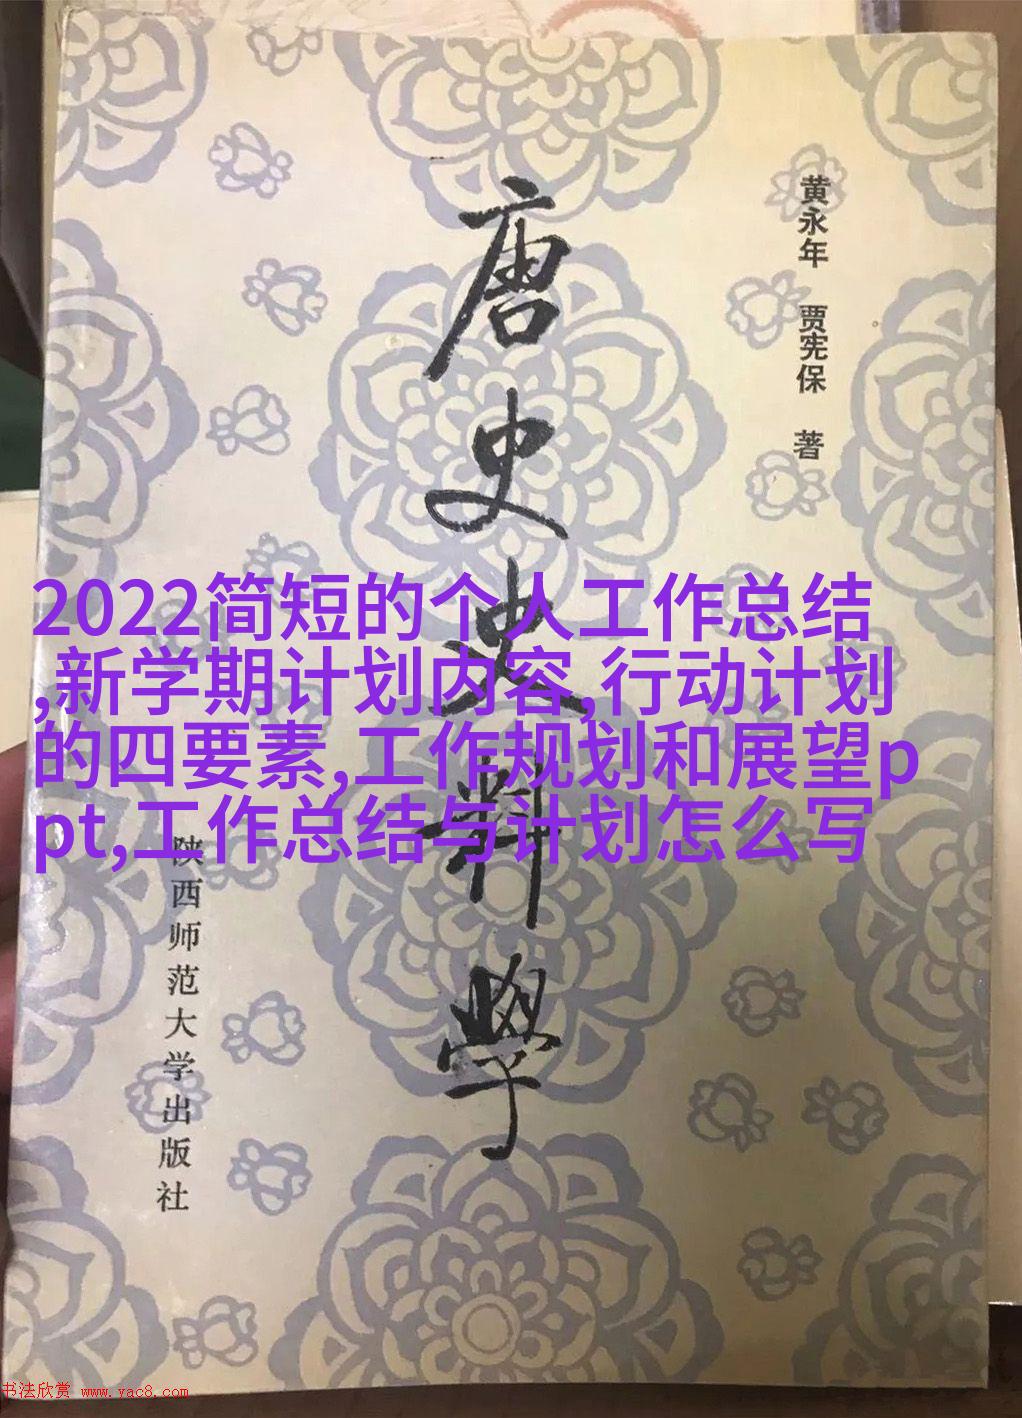 黄永年 贾宪保 著
唐史史料学
陕西师范大学出版社
2022简短的个人工作总结
,新学期计划内容,行动计划
的四要素,工作规划和展望p
pt,工作总结与计划怎么写
书法欣赏 www.yac8.com